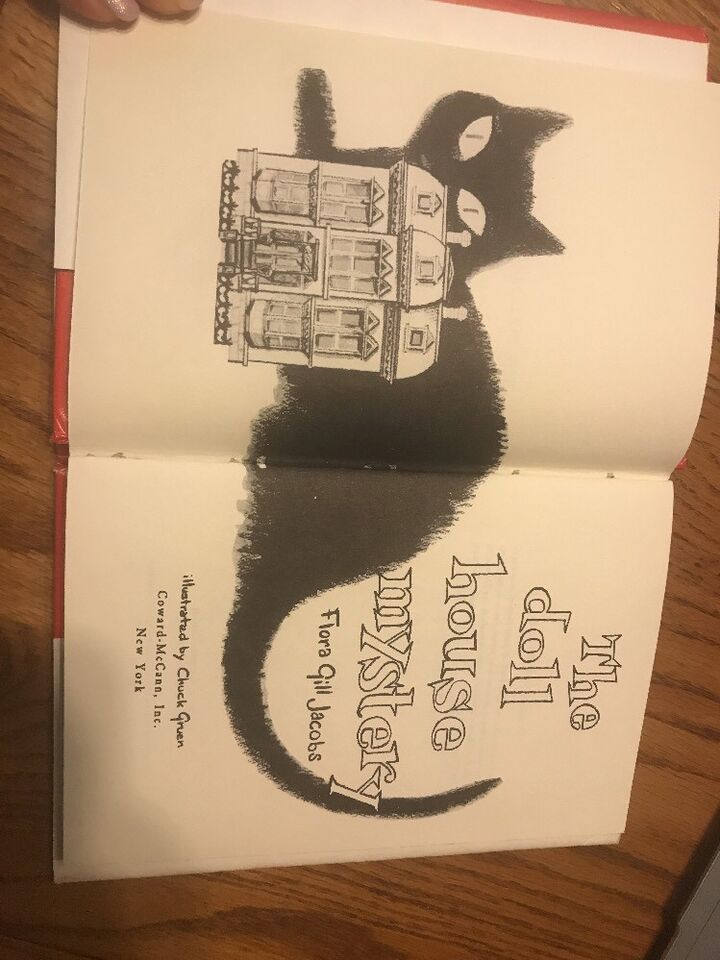 The
doll
house
mystery
Flora Gill Jacobs
illustrated by Chuck Gruen
Coward-McCann, Inc.
New York